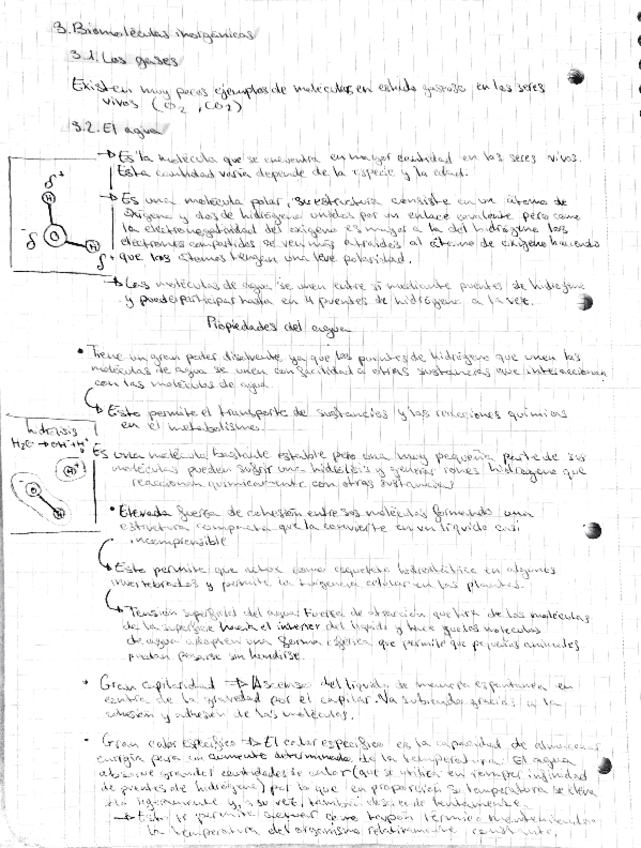 3. Biomoléculas inorgánicas
3.1. Los gases
Existen muy pocos ejemplos de moléculas en estado gaseoso en los seres
vivos (O2, CO2)
3.2. El agua
→ Es la molécula que se encuentra en mayor cantidad en los seres vivos.
Esta cantidad varía depende de la especie y la edad.
→ Es una molécula polar, su estructura consiste en un átomo de
Oxígeno y dos de hidrógeno unidos por un enlace covalente pero como
la electronegatividad del oxígeno es mayor a la del hidrógeno los
electrones compartidos se ven más atraídos al átomo de oxígeno haciendo
que los átomos tengan una leve polaridad.
δ+
H
-δ O H
δ+
→ Las moléculas de agua se unen entre si mediante puentes de hidrógeno
y puede participar hasta en 4 puentes de hidrógeno a la vez.
Propiedades del agua
• Tiene un gran poder disolvente ya que los puentes de hidrógeno que unen las
moléculas de agua se unen con facilidad a otras sustancias que interaccionan
con las moléculas de agua.
→ Esto permite el transporte de sustancias y las reacciones químicas
en el metabolismo.
hidrólisis
H2O → OH- + H+
H+
O
H
Es una molécula bastante estable pero una muy pequeña parte de sus
moléculas pueden sufrir una hidrólisis y generar iones hidrógeno que
reaccionan químicamente con otras sustancias
• Elevada fuerza de cohesión entre sus moléculas formando una
estructura compacta que la convierte en un líquido casi
incomprensible
→ Esto permite que actúe como esqueleto hidrostático en algunos
invertebrados y permite la turgencia celular en las plantas.
→ Tensión superficial del agua: Fuerza de atracción que tira de las moléculas
de la superficie hacia el interior del líquido y hace que las moléculas
de agua adopten una forma esférica que permite que pequeños animales
puedan posarse sin hundirse.
• Gran capilaridad → Ascenso del líquido de manera espontánea en
contra de la gravedad por el capilar. Va subiendo gracias a la
cohesión y adhesión de las moléculas.
• Gran calor específico → El calor específico es la capacidad de almacenar
energía para un aumento determinado de la temperatura. El agua
absorve grandes cantidades de calor (que se utiliza en romper infinidad
de puentes de hidrógeno) por lo que en proporción su temperatura se eleva
ligeramente y, a su vez, también desciende lentamente.
→ Esto permite actuar como tampón térmico manteniendo
la temperatura del organismo relativamente constante.